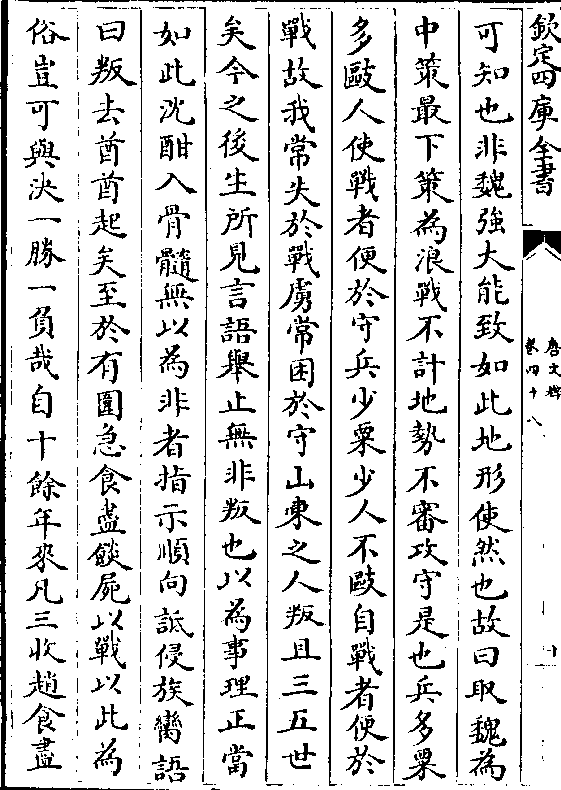 欽定四庫全書
唐文粹
卷四十八
可知也非魏強大能致如此地形使然也故曰取魏為
中策最下策為浪戰不計地勢不審攻守是也兵多粟
多敺人使戰者便於守兵少粟少人不敺自戰者便於
戰故我常失於戰虜常困於守山東之人叛且三五世
矣今之後生所見言語舉止無非叛也以為事理正當
如此沈酣入骨髓無以為非者指示順向詆侵族臠語
曰叛去酋酋起矣至於有圍急食盡餤屍以戰以此為
俗豈可與決一勝一負哉自十餘年來凡三收趙食盡